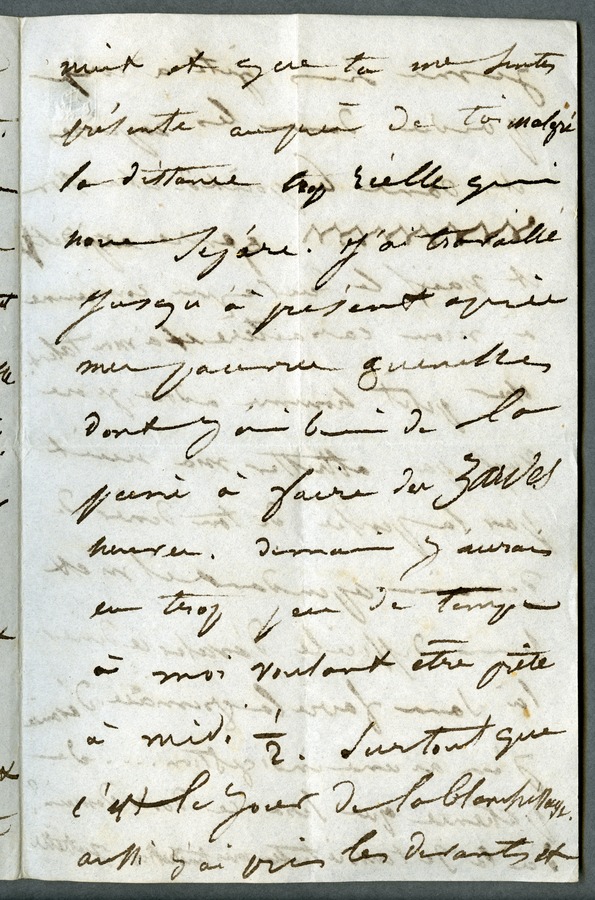 nuit et que tu me sentes
présente auprès de toi malgré
la distance trop réelle qui
nous sépare. J'ai travaillé
jusqu'à présent après
mes pauvres guenilles
dont j'ai bien de la
peine à faire des
heures. Demain j'aurais
eu trop peu de temps
à moi voulant être prête
à midi ½. Surtout que
c'est le jour de la blanchissage.
aussi j'ai pris les devants et